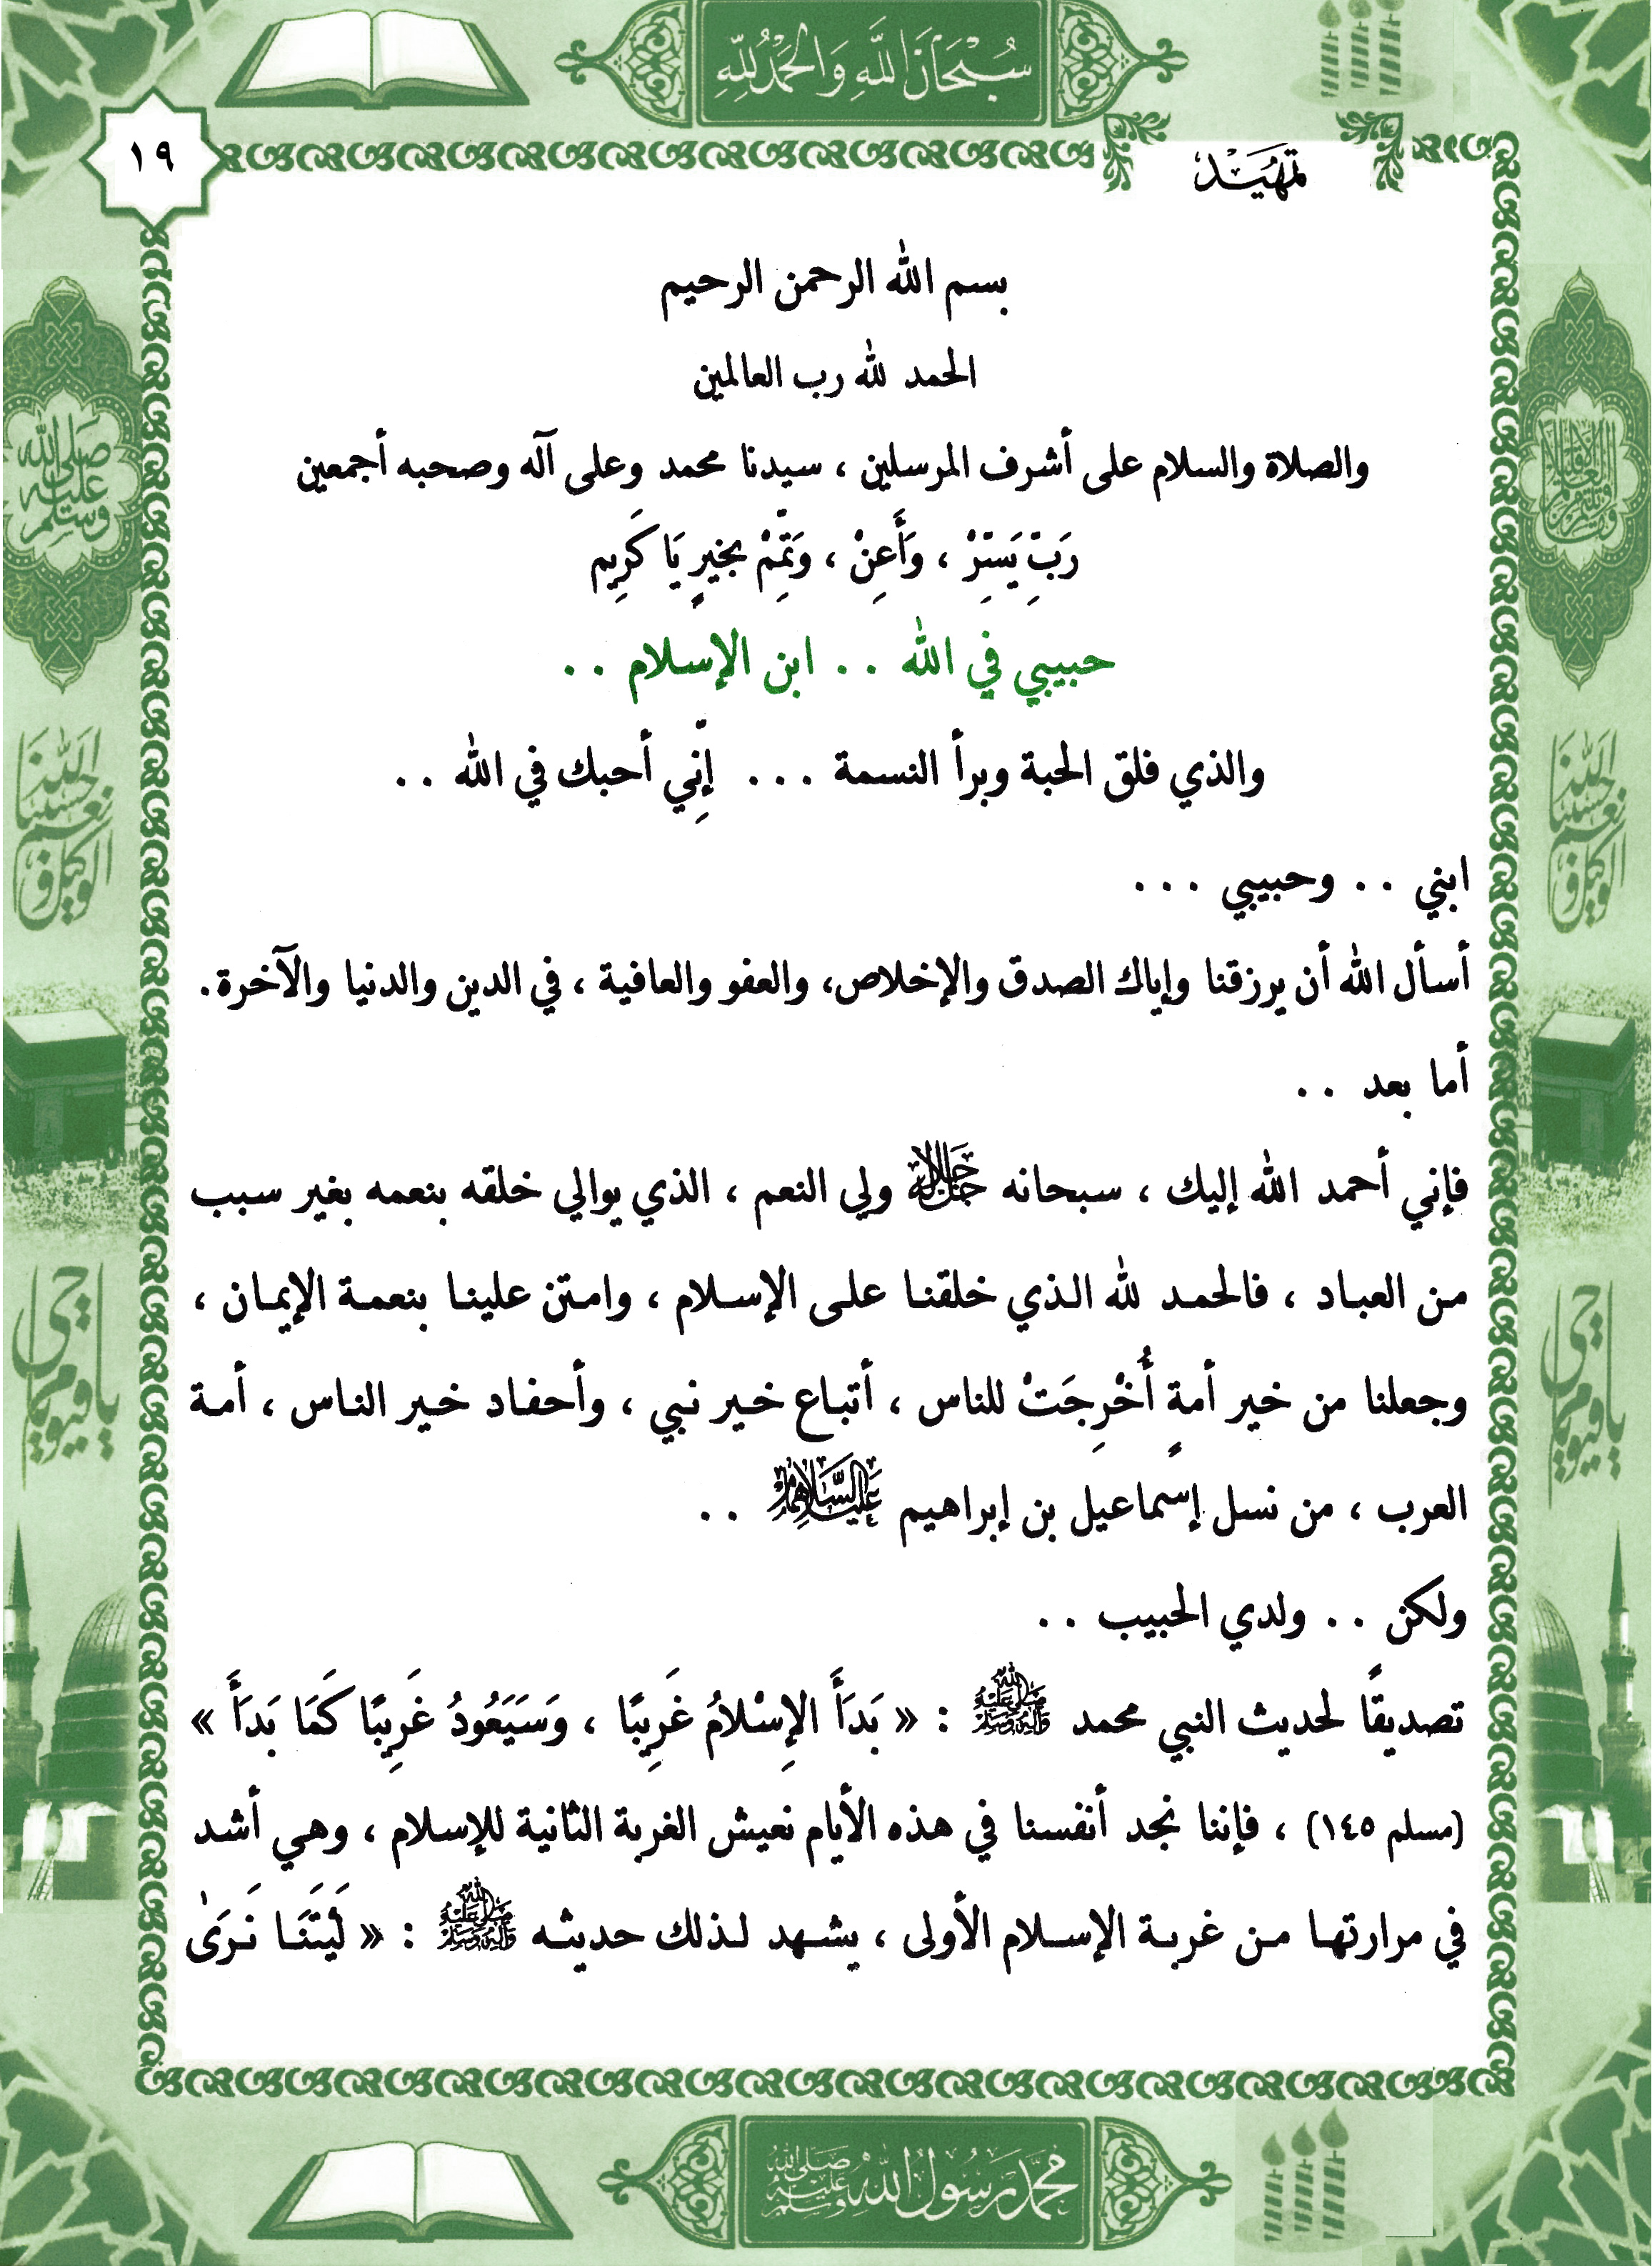 سُبْحَانَ اللَّهِ وَالْحَمْدُ لِلَّهِ
١٩
تمهيد
بسم الله الرحمن الرحيم
الحمد لله رب العالمين
والصلاة والسلام على أشرف المرسلين ، سيدنا محمد وعلى آله وصحبه أجمعين
رَبِّ يَسِّرْ ، وَأَعِنْ ، وَتَمِّمْ بخيرٍ يَا كَرِيم
حبيبي في الله . . ابن الإسلام . .
والذي فلق الحبة وبرأ النسمة . . . إنِّي أحبك في الله . .
ابني . . وحبيبي . . .
أسأل الله أن يرزقنا وإياك الصدق والإخلاص، والعفو والعافية ، في الدين والدنيا والآخرة.
أما بعد . .
فإني أحمد الله إليك ، سبحانه جل جلاله ولي النعم ، الذي يوالي خلقه بنعمه بغير سبب
من العباد ، فالحمد لله الذي خلقنا على الإسلام ، وامتن علينا بنعمة الإيمان ،
وجعلنا من خير أمةٍ أُخْرِجَتْ للناس ، أتباع خير نبي ، وأحفاد خير الناس ، أمة
العرب ، من نسل إسماعيل بن إبراهيم عليهما السلام . .
ولكن . . ولدي الحبيب . .
تصديقًا لحديث النبي محمد صلى الله عليه وآله وسلم : « بَدَأَ الإِسْلامُ غَرِيبًا ، وَسَيَعُودُ غَرِيبًا كَمَا بَدَأَ »
(مسلم ١٤٥) ، فإننا نجد أنفسنا في هذه الأيام نعيش الغربة الثانية للإسلام ، وهي أشد
في مرارتها من غربة الإسلام الأولى ، يشهد لذلك حديثه صلى الله عليه وآله وسلم : « لَيْتَنَا نَرَىٰ
صلى الله عليه وسلم
حسبنا الله ونعم الوكيل
حسبنا الله ونعم الوكيل
يا حي يا قيوم
يا حي يا قيوم
محمد رسول الله صلى الله عليه وسلم